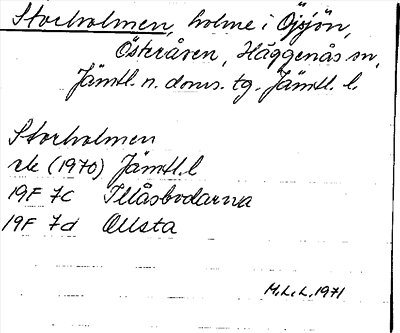 Storholmen, holme i Öjsjön,
Österåsen, Häggenås sn,
Jämtl. n. doms. tg. Jämtl. l.
Storholmen
rk (1970) Jämtl. l
19F 7c Illåsbodarna
19F 7d Ollsta
M.L.L. 1971